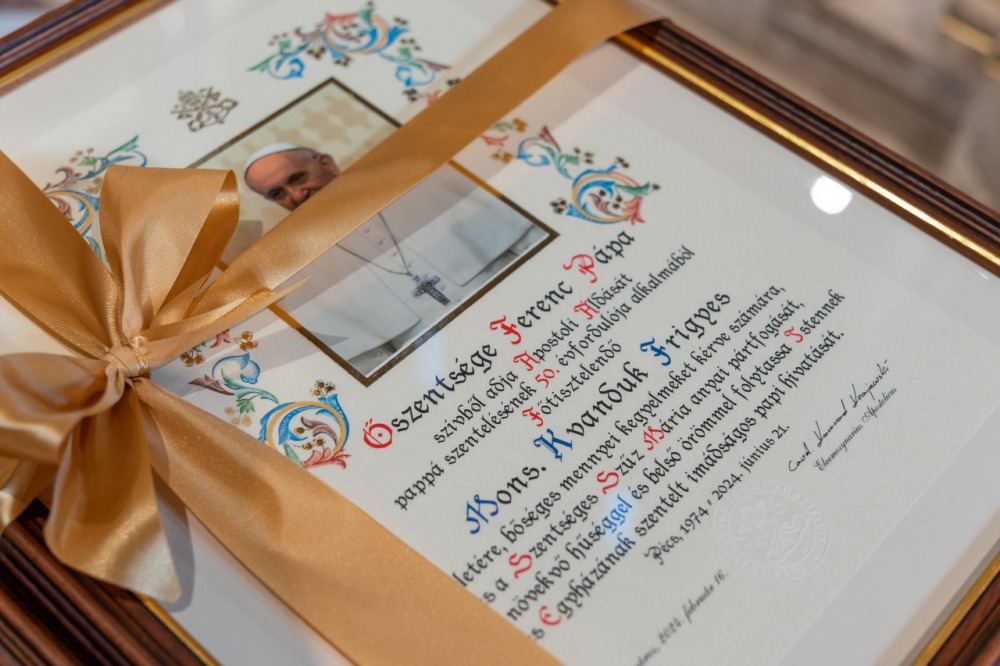 Őszentsége Ferenc Pápa
szívből adja Apostoli Áldását
pappá szentelésének 50. évfordulója alkalmából
Főtisztelendő
Mons. Kvanduk Frigyes
letére, bőséges mennyei kegyelmeket kérve számára,
s a Szentséges Szűz Mária anyai pártfogását,
növekvő hűséggel és belső örömmel folytassa Istennek
s Egyházának szentelt imádságos papi hivatását.
Pécs, 1974 - 2024. június 21.
Eleemosynarius Apostolicus
2024. február 16.